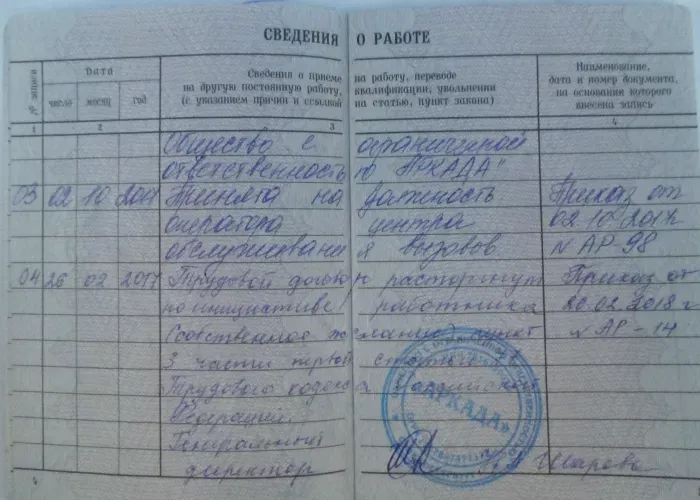 СВЕДЕНИЯ О РАБОТЕ
№ записи
Дата
число
месяц
год
Сведения о приеме на работу, переводе
на другую постоянную работу, квалификации, увольнении
(с указанием причин и ссылкой на статью, пункт закона)
Наименование,
дата и номер документа,
на основании которого
внесена запись
1 2 3 4
Общество с ограниченной
ответственностью "АРКАДА"
03 02 10 2017 Принята на должность Приказ от
оператора центра 02.10.2017
обслуживания вызовов N АР-98
04 26 02 2017 Трудовой договор расторгнут Приказ от
по инициативе работника 20.02.2018 г
(собственное желание) пункт N АР-14
3 части первой статьи
Трудового кодекса Российской
Федерации.
Генеральный
директор Шарова
«АРКАДА»